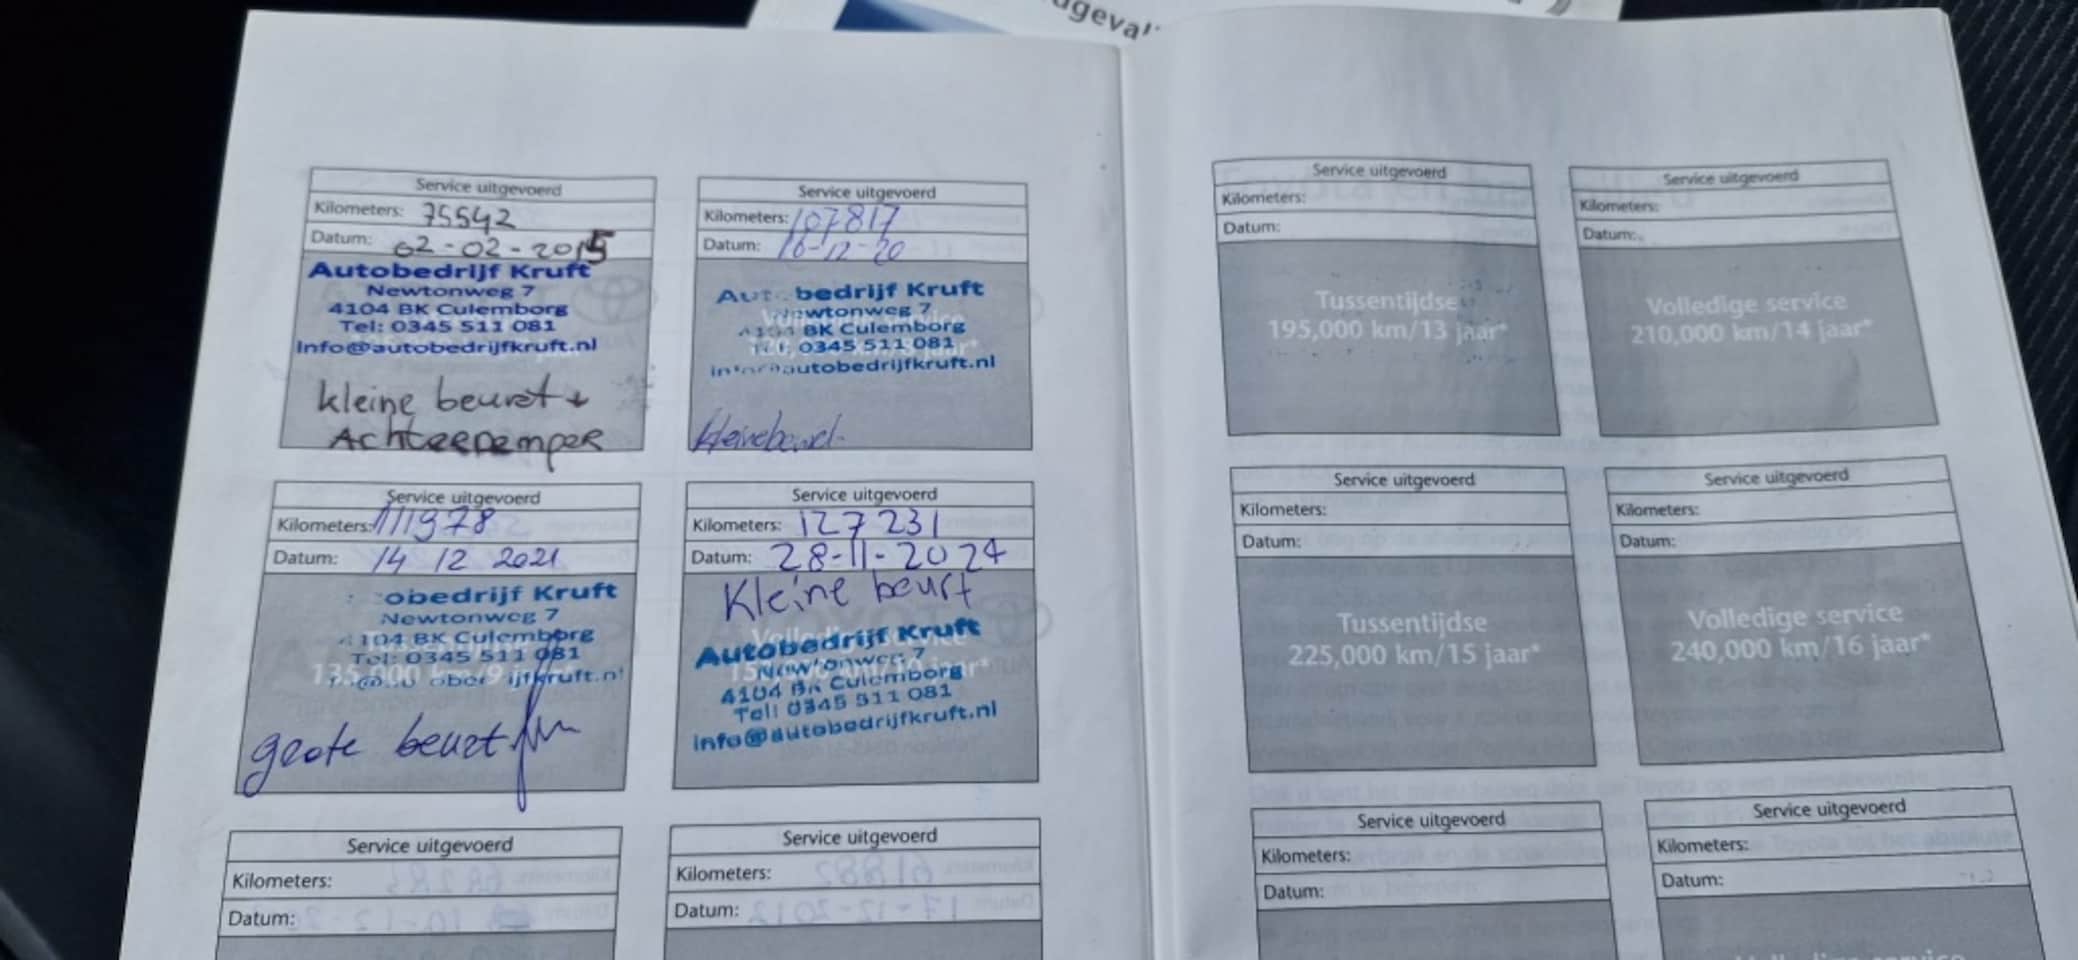 Service uitgevoerd
Kilometers: 75542
Datum: 02-02-2015
Autobedrijf Kruft
Newtonweg 7
4104 BK Culemborg
Tel: 0345 511 081
Info@autobedrijfkruft.nl
kleine beurt +
Achterdemper
Service uitgevoerd
Kilometers: 107817
Datum: 16-12-20
Autobedrijf Kruft
Newtonweg 7
4104 BK Culemborg
Tel: 0345 511 081
info@autobedrijfkruft.nl
kleine beurt
Service uitgevoerd
Kilometers: 111978
Datum: 14 12 2021
obedrijf Kruft
Newtonweg 7
4104 BK Culemborg
Tel: 0345 511 081
135,000 km/9 jaar*
grote beurt
Service uitgevoerd
Kilometers: 127231
Datum: 28-11-2024
Kleine beurt
Volledige service
Autobedrijf Kruft
Newtonweg 7
4104 BK Culemborg
Tel: 0345 511 081
info@autobedrijfkruft.nl
Service uitgevoerd
Kilometers:
Datum:
Service uitgevoerd
Kilometers:
Datum:
Service uitgevoerd
Kilometers:
Datum:
Tussentijdse
195,000 km/13 jaar*
Service uitgevoerd
Kilometers:
Datum:
Volledige service
210,000 km/14 jaar*
Service uitgevoerd
Kilometers:
Datum:
Tussentijdse
225,000 km/15 jaar*
Service uitgevoerd
Kilometers:
Datum:
Volledige service
240,000 km/16 jaar*
Service uitgevoerd
Kilometers:
Datum:
Service uitgevoerd
Kilometers:
Datum:
Volledige service